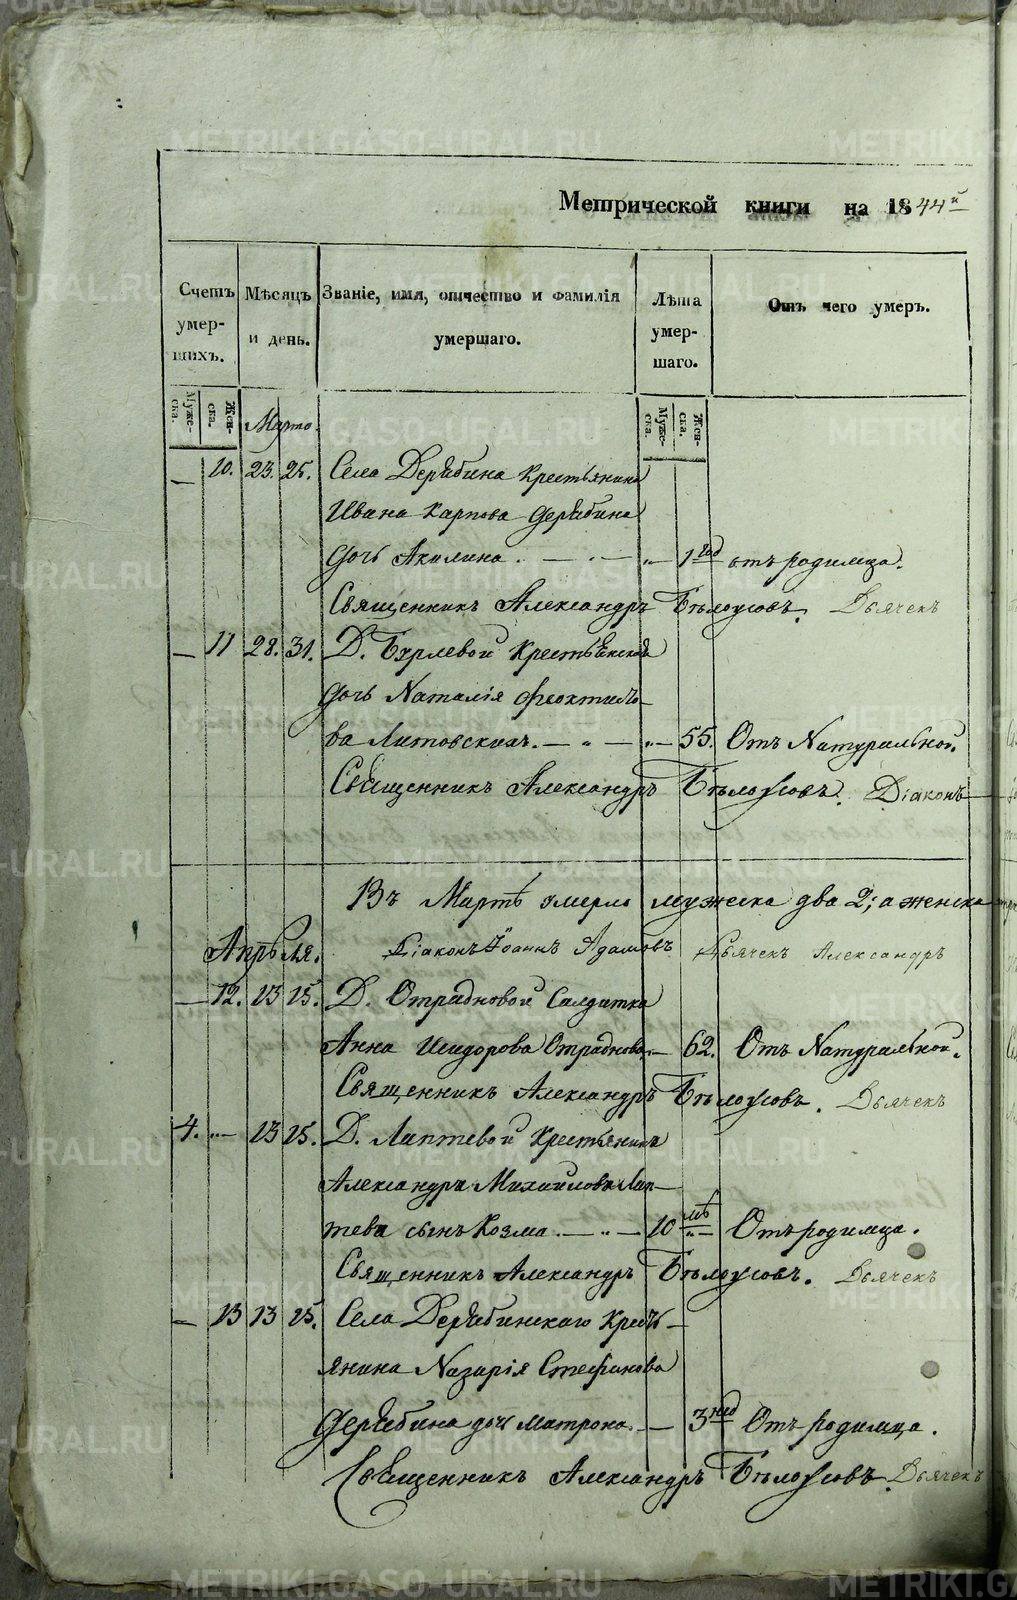 Метрической книги на 1844й
Счетъ умер-шихъ.
Мѣсяцъ и день.
Званіе, имя, отчество и фамилія умершаго.
Лѣта умер-шаго.
Отъ чего умеръ.
Муже-ска.
Жен-ска.
Марта.
Муже-ска.
Жен-ска.
— 10. 23. 25. Села Дерябина Крестьянина
Ивана Карпова Дерябина
дочь Акилина . — . — „ 1 год отъ родимца.
Священникъ Александръ Бѣлоусовъ. Дьячекъ
— 11 28. 31. Д. Бурлевой Крестьянская
дочь Наталія Феоктисто-
ва Литовскихъ. — „ — „ — 55. Отъ Натуральной.
Священникъ Александръ Бѣлоусовъ. Діаконъ
Въ Мартѣ умерло мужеска два 2; а женска
Апрѣля.
Діаконъ Іоаннъ Адамовъ Дьячекъ Александръ
— 12. 13 15. Д. Отрадновой Салдатка
Анна Исидорова Отраднова. — 62. Отъ Натуральной.
Священникъ Александръ Бѣлоусовъ. Дьячекъ
4. „— 13 15. Д. Лаптевой Крестьянина
Александра Михайлова Лап-
тева сынъ Козма. — „ — 10 лѣ „— Отъ родимца.
Священникъ Александръ Бѣлоусовъ. Дьячекъ
— 13 13 15. Села Дерябинскаго Кресть-
янина Назарія Стефанова
Дерябина дочь Матрона. — 3 нед Отъ родимца.
Священникъ Александръ Бѣлоусовъ. Дьячекъ
METRIKI.GASO-URAL.RU